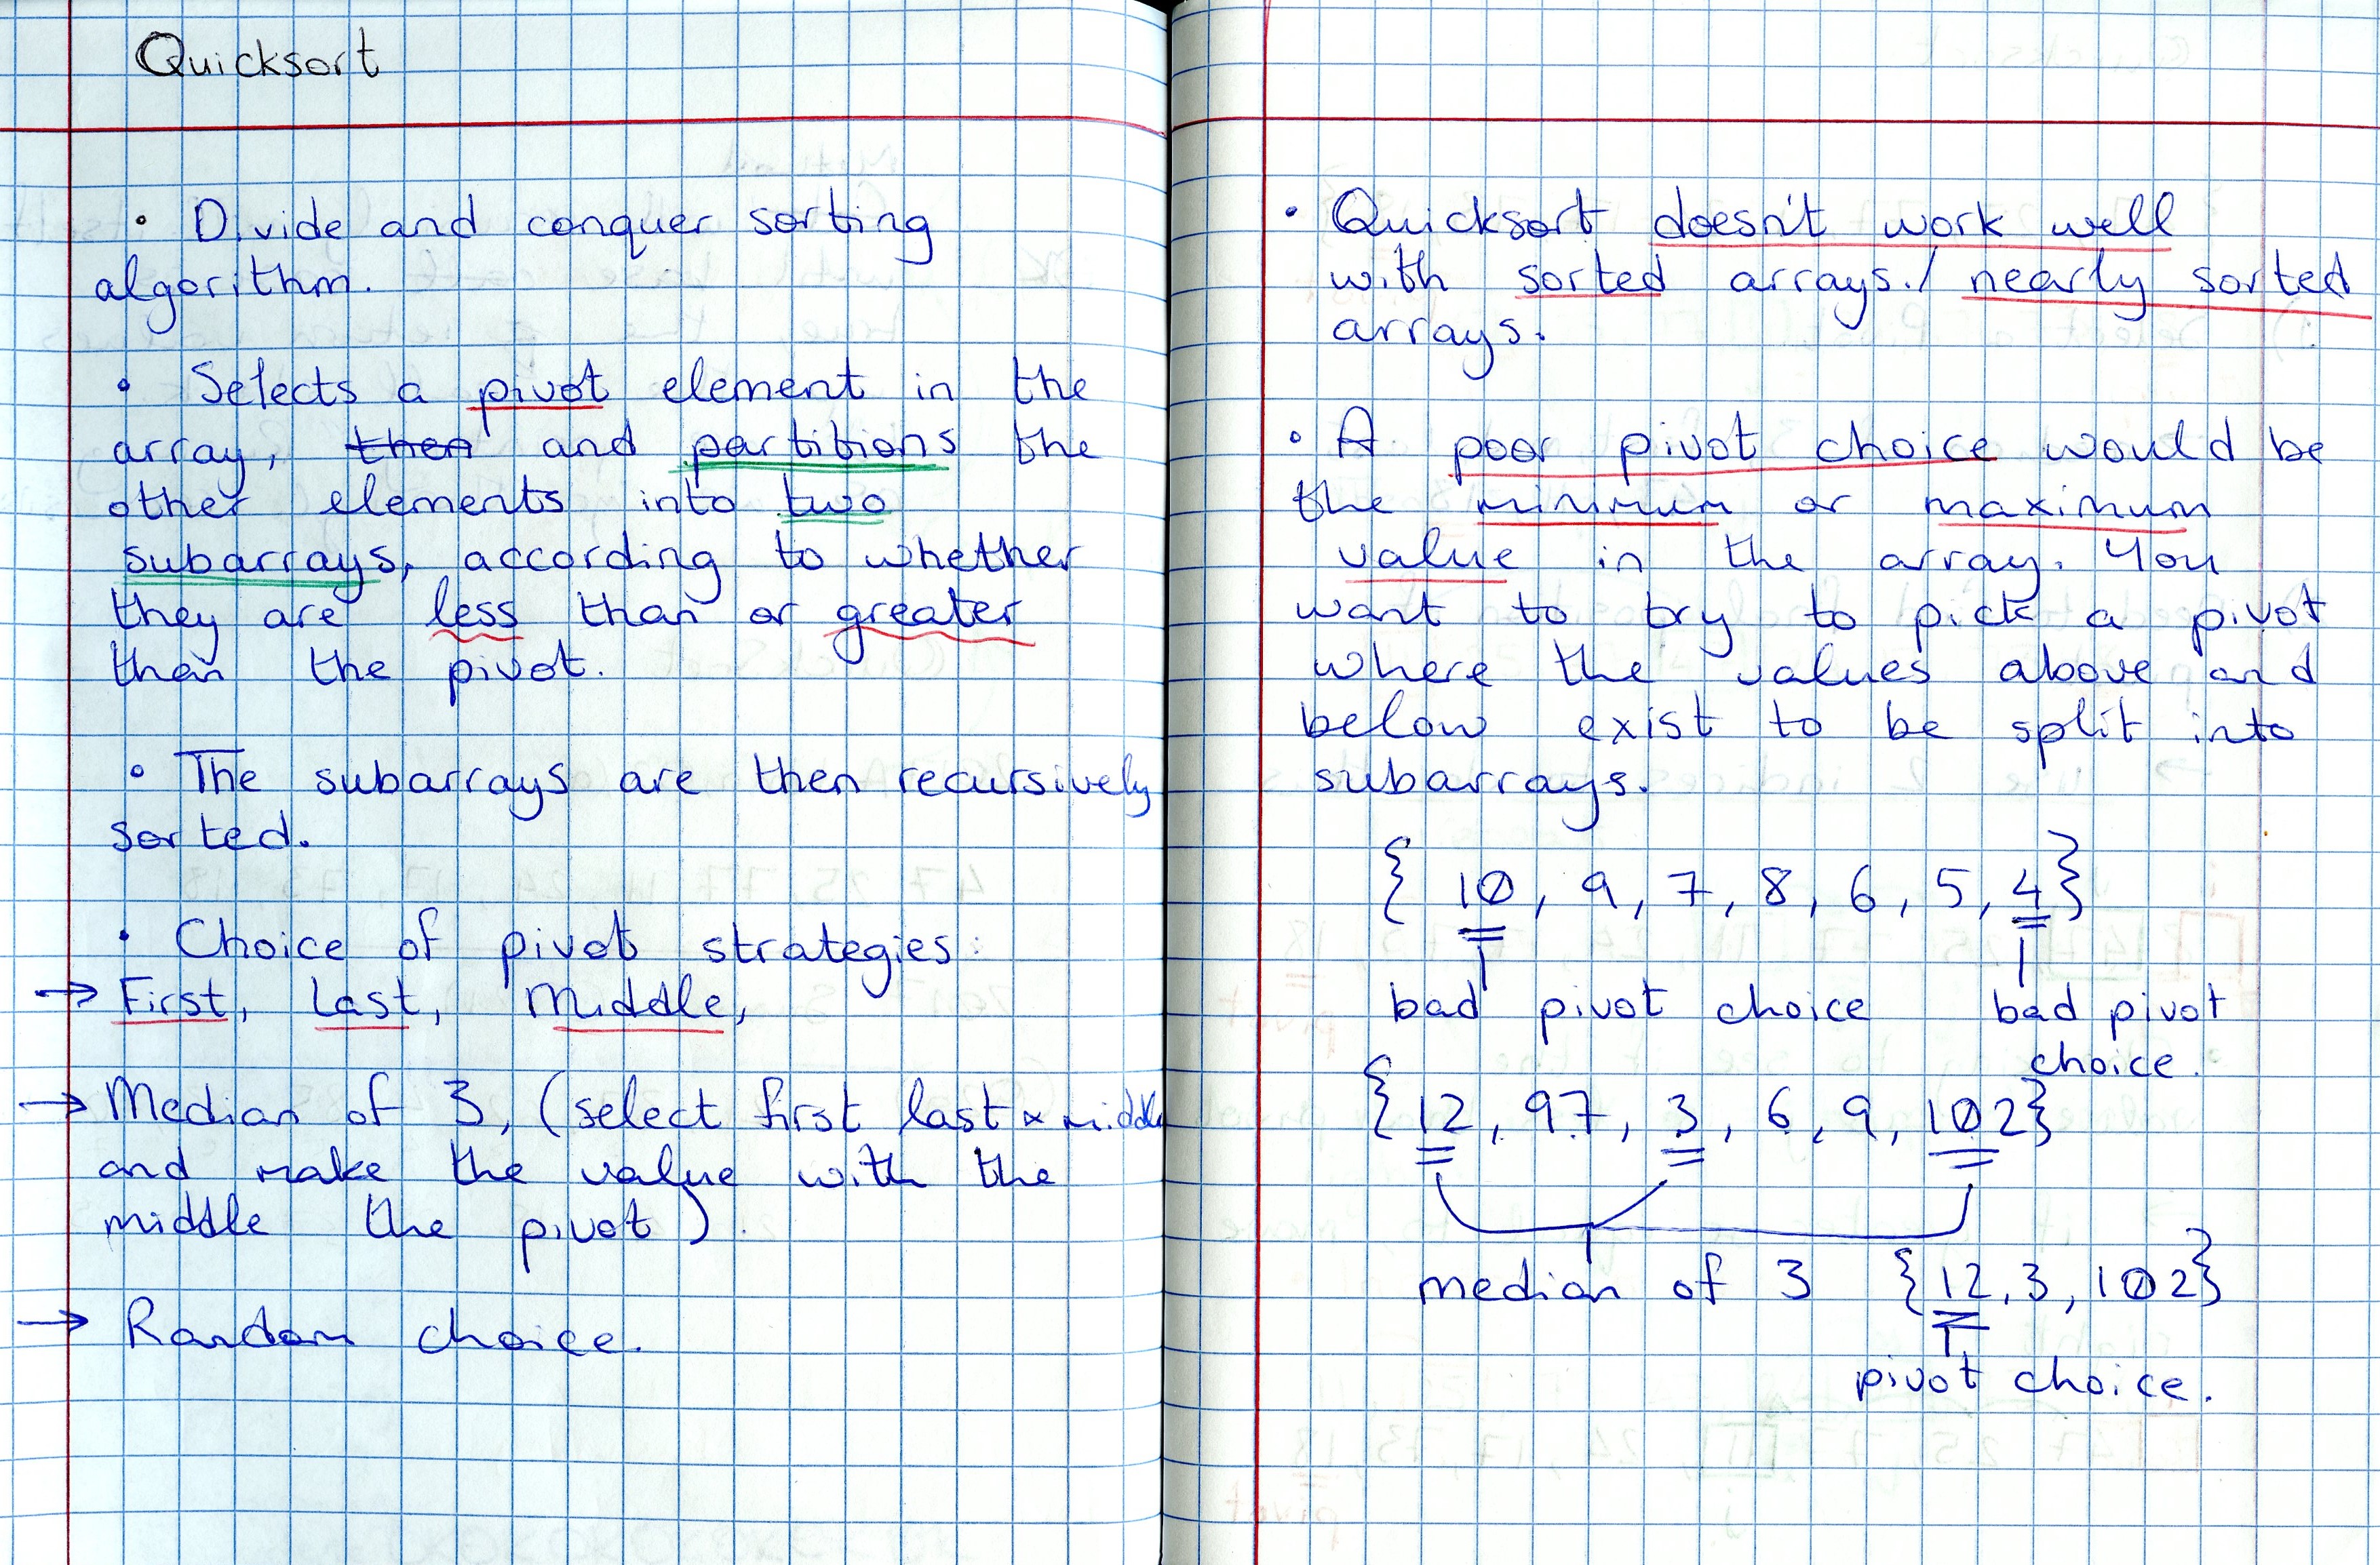 Quicksort
• Divide and conquer sorting
algorithm.
• Selects a pivot element in the
array, then and partitions the
other elements into two
subarrays, according to whether
they are less than or greater
than the pivot.
• The subarrays are then recursively
sorted.
• Choice of pivot strategies:
→ First, Last, Middle,
→ Median of 3, (select first last & middle
and make the value with the
middle the pivot).
→ Random choice.
• Quicksort doesn't work well
with sorted arrays. / nearly sorted
arrays.
• A poor pivot choice would be
the minimum or maximum
value in the array. You
want to try to pick a pivot
where the values above and
below exist to be split into
subarrays.
{ 10, 9, 7, 8, 6, 5, 4 }
bad pivot choice bad pivot
choice.
{ 12, 97, 3, 6, 9, 102 }
median of 3 { 12, 3, 102 }
pivot choice.